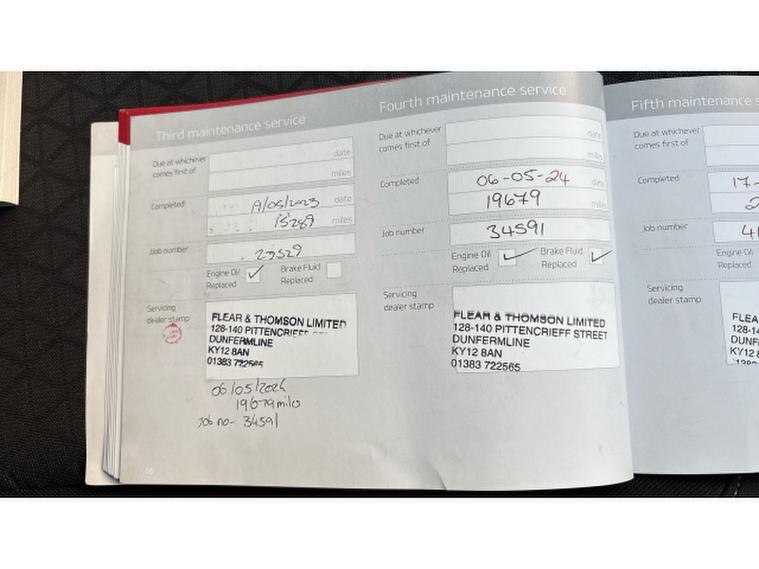 Third maintenance service
Due at whichever
comes first of
date
miles
Completed
date
15289 miles
Job number
Engine Oil
Replaced
Brake Fluid
Replaced
Servicing
dealer stamp
FLEAR & THOMSON LIMITED
128-140 PITTENCRIEFF
DUNFERMLINE
KY12 8AN
01383 722565
06/05/2024
19679 miles
Job no- 34591
16
Fourth maintenance service
Due at whichever
comes first of
date
miles
Completed
06-05-24 date
19679 miles
Job number
34591
Engine Oil
Replaced
Brake Fluid
Replaced
Servicing
dealer stamp
FLEAR & THOMSON LIMITED
128-140 PITTENCRIEFF STREET
DUNFERMLINE
KY12 8AN
01383 722565
Fifth maintenance
Due at whichever
comes first of
Completed
17-
2
Job number
41
Engine Oil
Replaced
Servicing
dealer stamp
FLEA
128-1
DUNF
KY12 8